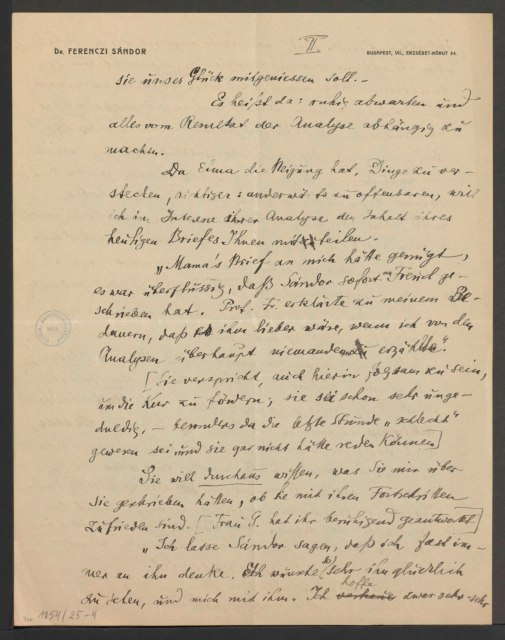 II.
Dr. FERENCZI SÁNDOR
BUDAPEST, VII., ERZSÉBET-KÖRUT 54.
sie unser Glück mitgeniessen soll.–
Es heißt da: ruhig abwarten und
alles vom Resultat der Analyse abhängig zu
machen.
Da Elma die Neigung hat, Dinge zu ver-
stecken, richtiger: anderwärts zu offenbaren, will
ich im Interesse ihrer Analyse den Inhalt ihres
heutigen Briefes Ihnen mitteilen.
„Mama's Brief an mich hätte genügt,
es war überflüssig, daß Sándor sofort an Freud ge-
schrieben hat. Prof. Fr. erklärte zu meinem Be-
dauern, daß es ihm lieber wäre, wenn ich von den
Analysen überhaupt niemandem erzählte".
[Sie verspricht, auch hierin folgsam zu sein,
um die Kur zu fördern; sie sei schon sehr unge-
duldig, – besonders da die letzte Stunde „schlecht"
gewesen sei und sie gar nicht hätte reden können]
Sie will durchaus wissen, was Sie mir über
sie geschrieben hätten, ob Sie mit ihren Fortschritten
zufrieden sind. [Frau G. hat ihr beruhigend geantwortet]
„Ich lasse Sándor sagen, daß ich fast im-
mer an ihn denke. Ich wünsche so sehr ihn glücklich
zu sehen, und mich mit ihm. Ich hoffe zwar sehr, sehr
1054/25-4